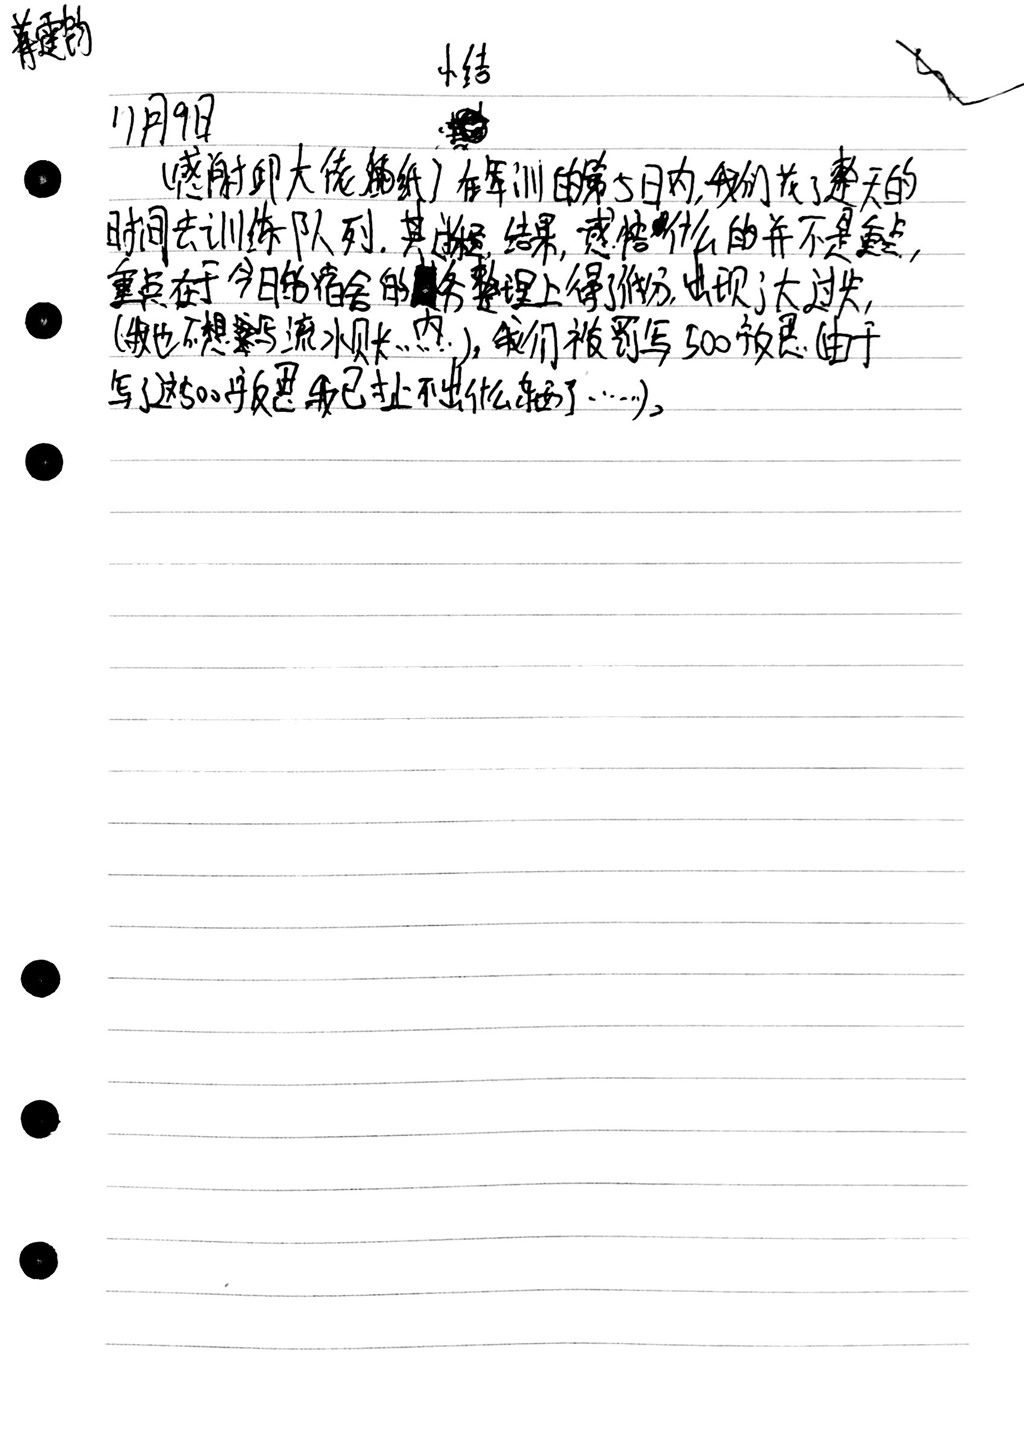 小结
11月9日
(感谢邱大佬 纸)在军训的第5日内,我们花了整天的
时间去训练队列.其过程,结果,感悟什么的并不是重点,
重点在于今日的宿舍的内务整理上得了低分,出现了大过失,
(我也不想写流水账……),我们被罚写500字反思(由于
写了这500字反思,我已写不出什么东西了……)。